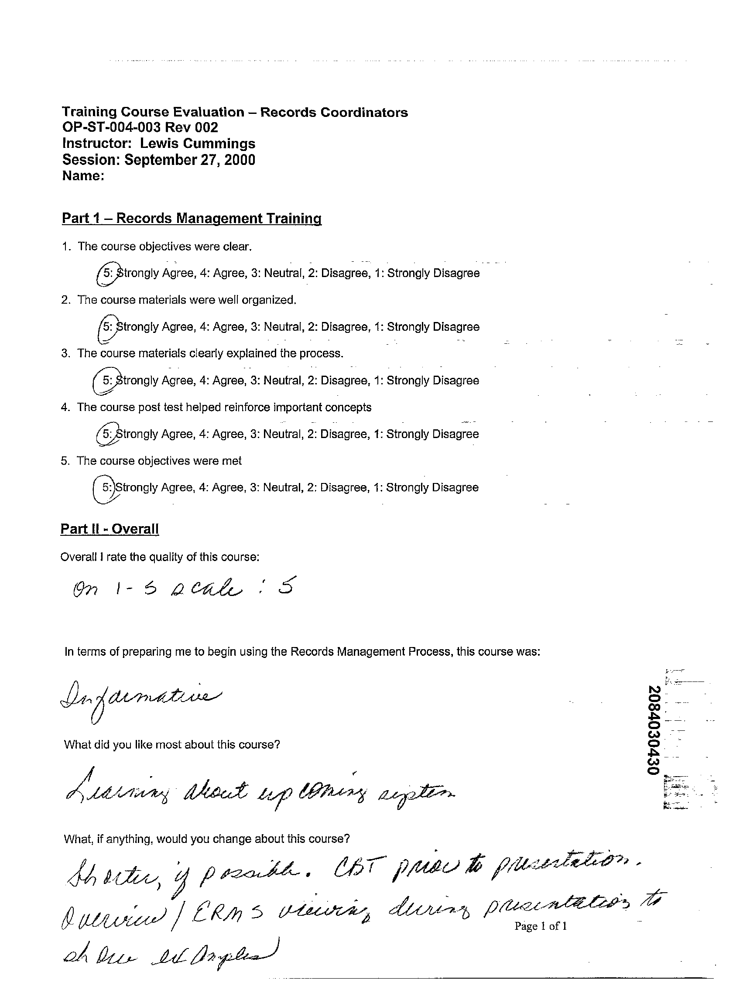 Training Course Evaluation – Records Coordinators
OP-ST-004-003 Rev 002
Instructor: Lewis Cummings
Session: September 27, 2000
Name:
Part 1 – Records Management Training
1. The course objectives were clear.
5: Strongly Agree, 4: Agree, 3: Neutral, 2: Disagree, 1: Strongly Disagree
2. The course materials were well organized.
5: Strongly Agree, 4: Agree, 3: Neutral, 2: Disagree, 1: Strongly Disagree
3. The course materials clearly explained the process.
5: Strongly Agree, 4: Agree, 3: Neutral, 2: Disagree, 1: Strongly Disagree
4. The course post test helped reinforce important concepts
5: Strongly Agree, 4: Agree, 3: Neutral, 2: Disagree, 1: Strongly Disagree
5. The course objectives were met
5: Strongly Agree, 4: Agree, 3: Neutral, 2: Disagree, 1: Strongly Disagree
Part II - Overall
Overall I rate the quality of this course:
on 1-5 scale : 5
In terms of preparing me to begin using the Records Management Process, this course was:
Informative
2084030430
What did you like most about this course?
Learning about upcoming system
What, if anything, would you change about this course?
Shorter, if possible. CBT prior to presentation.
Overview / ERMS viewing during presentation to
show examples)
Page 1 of 1